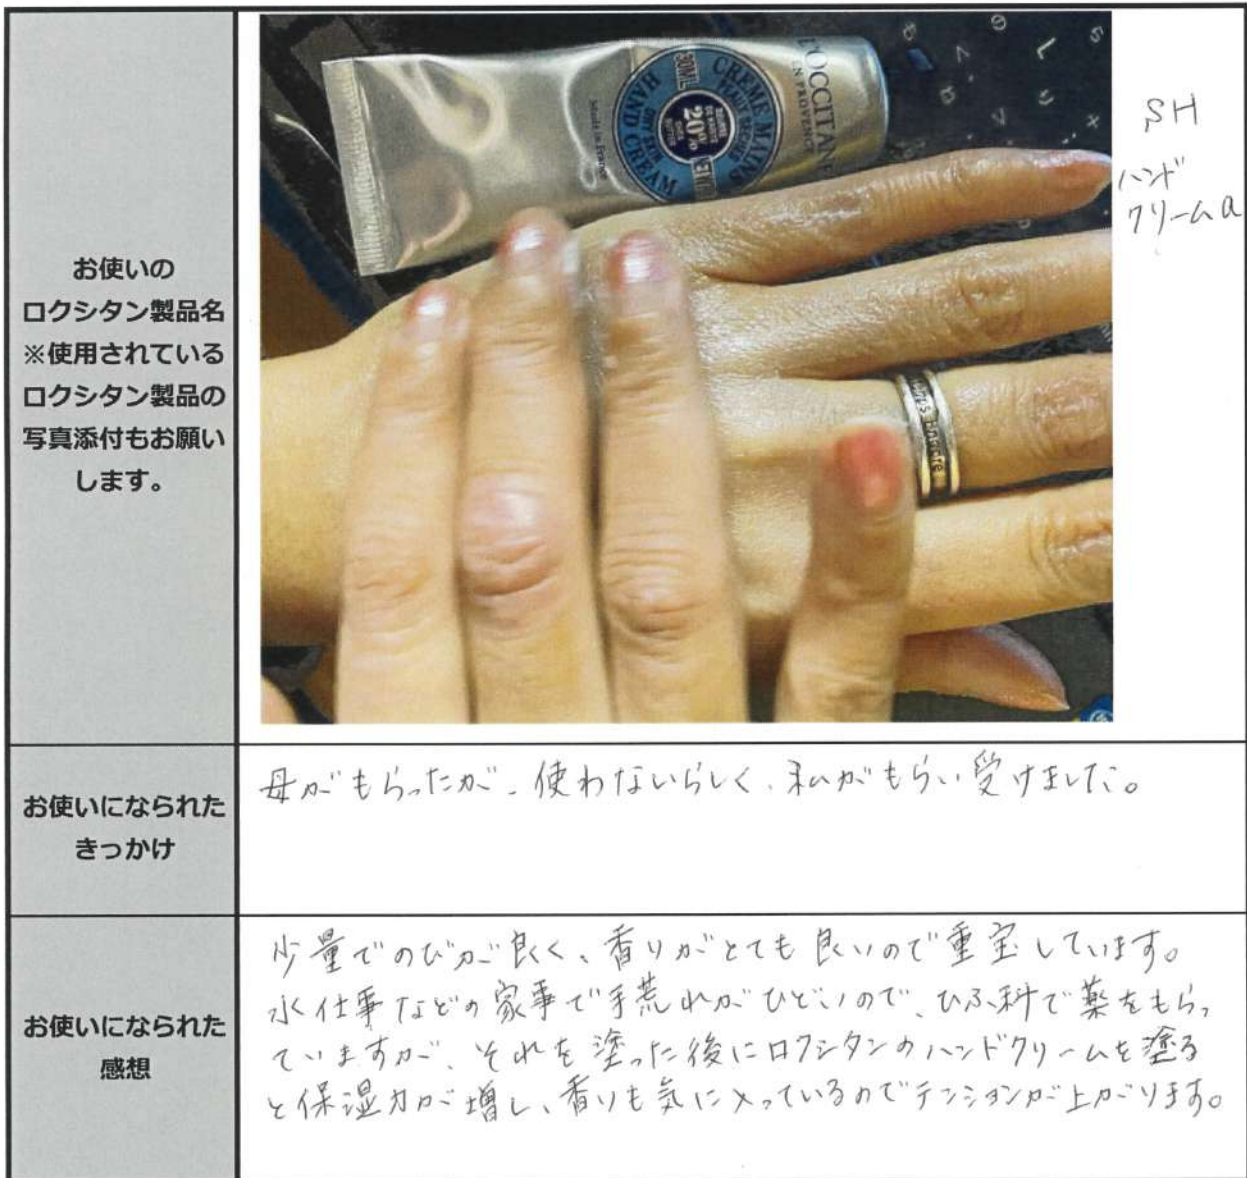 お使いの
ロクシタン製品名
※使用されている
ロクシタン製品の
写真添付もお願い
します。
L'OCCITANE
EN PROVENCE
CREME MAINS
PEAUX SECHES
20%
DRY SKIN
HAND CREAM
30ML
Made in France
SH
ハンド
クリームa
お使いになられた
きっかけ
母がもらったが、使わないらしく、私がもらい受けました。
お使いになられた
感想
少量でのびが良く、香りがとても良いので重宝しています。
水仕事などの家事で手荒れがひどいので、ひふ科で薬をもらっ
ていますが、それを塗った後にロクシタンのハンドクリームを塗る
と保湿力が増し、香りも気に入っているのでテンションが上がります。